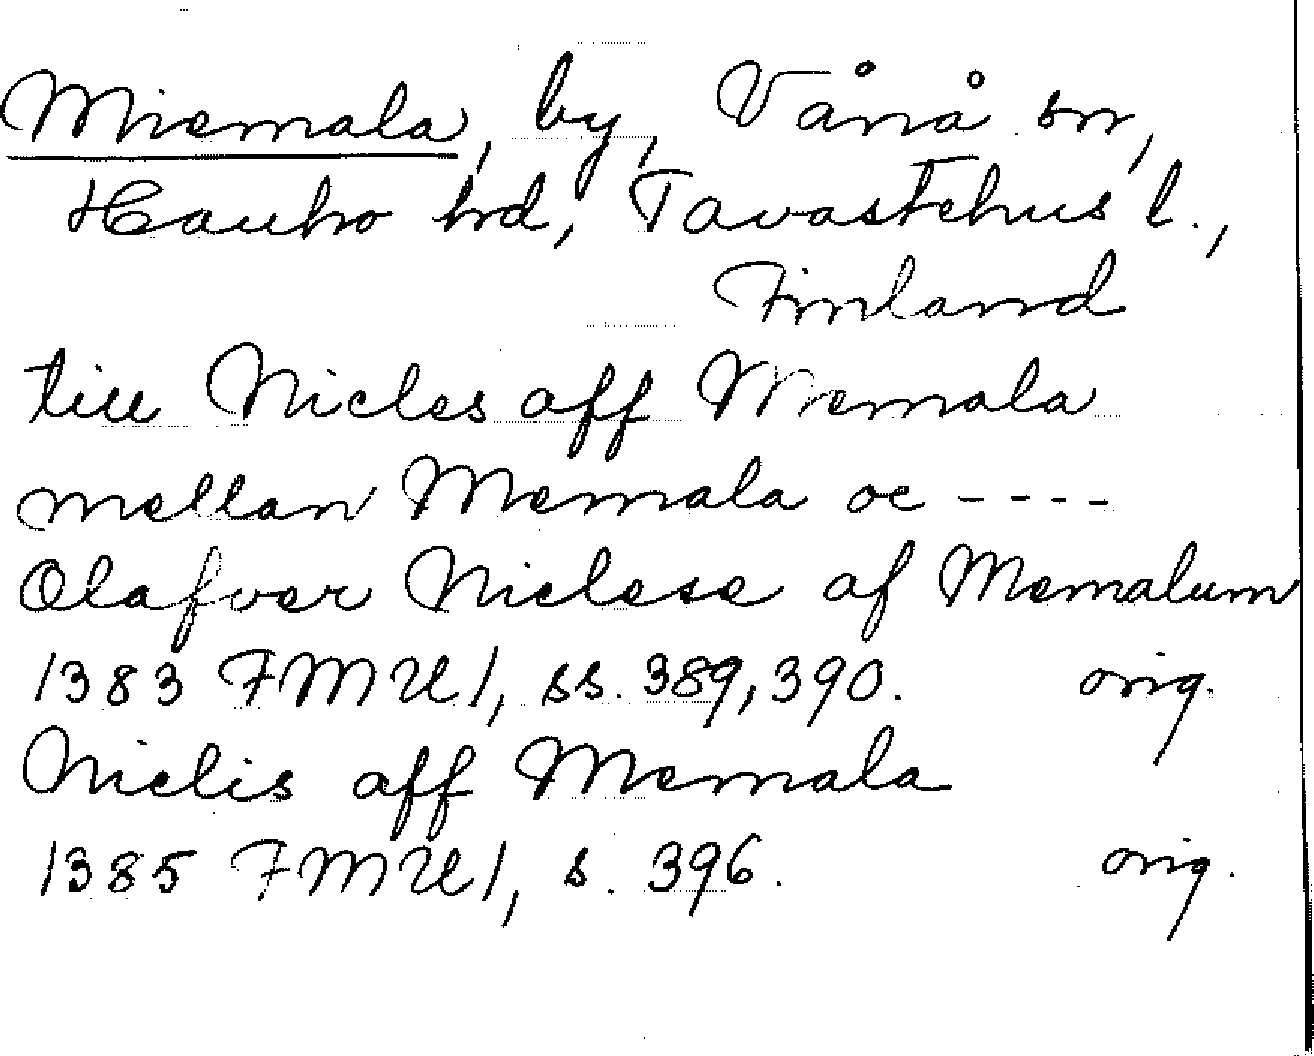 Miemala, by, Vånå sn,
Hauho hd, Tavastehus l.,
Finland
till Nicles aff Memala
mellan Memala oc ----
Olafver Niclese af Memalum
1383 FMU 1, ss. 389, 390. orig.
Niclis aff Memala
1385 FMU 1, s. 396. orig.